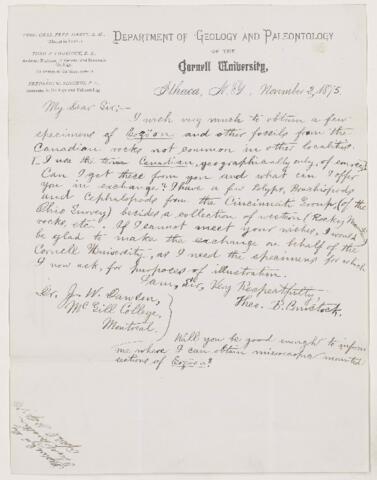 DEPARTMENT OF GEOLOGY AND PALEONTOLOGY
OF THE
Cornell University,
Ithaca, N. Y., November 3, 1875
My Dear Sir:—
I wish very much to obtain a few
specimens of Eozöon and other fossils from the
Canadian rocks not common in other localities.
I use the term Canadian, geographically only, of course.
Can I get these from you and what can I offer
you in exchange? I have a few Polyps, Brachiopods
and Cephalopods from the Cincinnati Group (of the
Ohio Survey) besides a collection of western (Rocky Mount.)
rocks, etc. If I cannot meet your wishes, I would
be glad to make the exchange on behalf of the
Cornell University, as I need the specimens for which
I now ask, for purposes of illustration.
I am, Sir, Very Respectfully
Theo. B. Comstock.
Dr. J. W. Dawson,
McGill College,
Montreal.
Will you be good enough to inform
me where I can obtain microscopic mounted
sections of Eozöon?